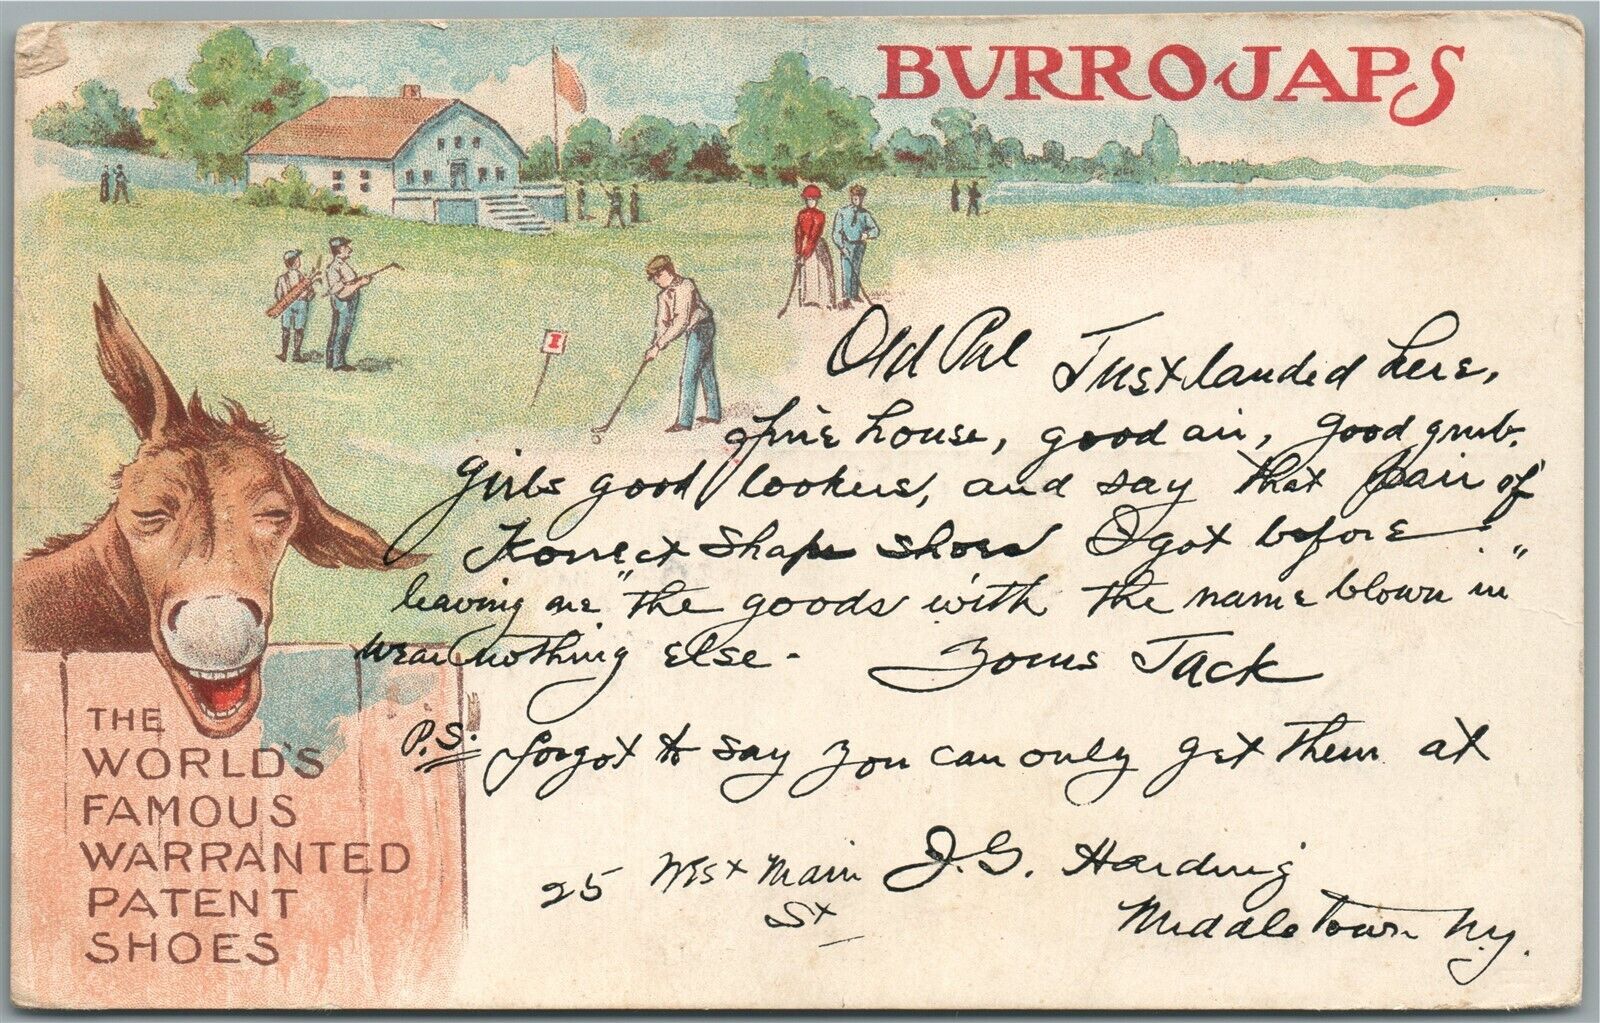 BURROJAPS
1
Old Pal Just landed here,
fine house, good air, good grub.
girls good lookers, and say that pair of
Korrect Shape shoes I got before
leaving are "the goods with the name blown in"
wear nothing else - Yours Jack
P.S. forgot to say you can only get them at
25 West Main J. G. Harding
St Middletown N.Y.
THE
WORLD'S
FAMOUS
WARRANTED
PATENT
SHOES